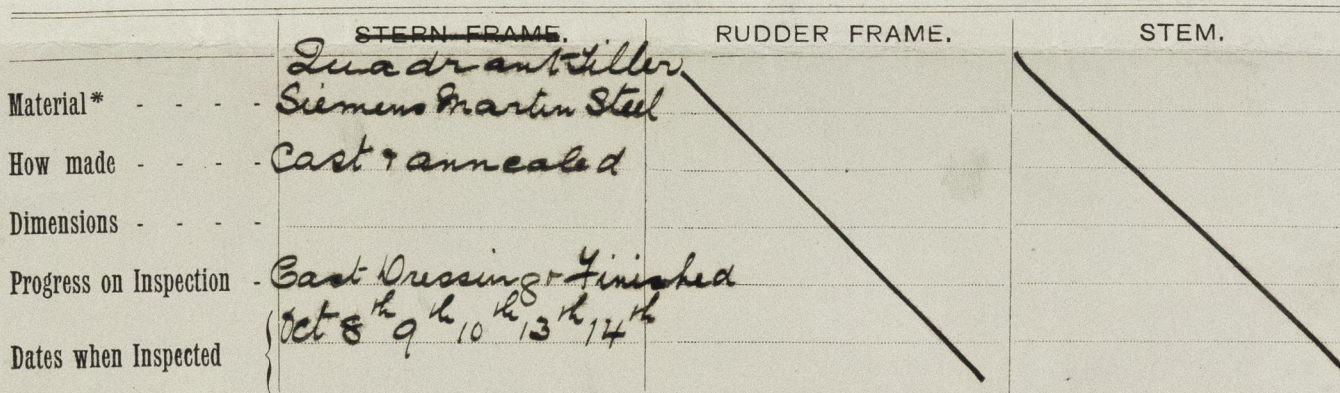 STERN FRAME. RUDDER FRAME. STEM.
Quadrant Tiller
Material* - - - - Siemens Martin Steel
How made - - - - Cast & annealed
Dimensions - - - -
Progress on Inspection - Cast Dressing & Finished
Dates when Inspected Oct 8th 9th 10th 13th 14th